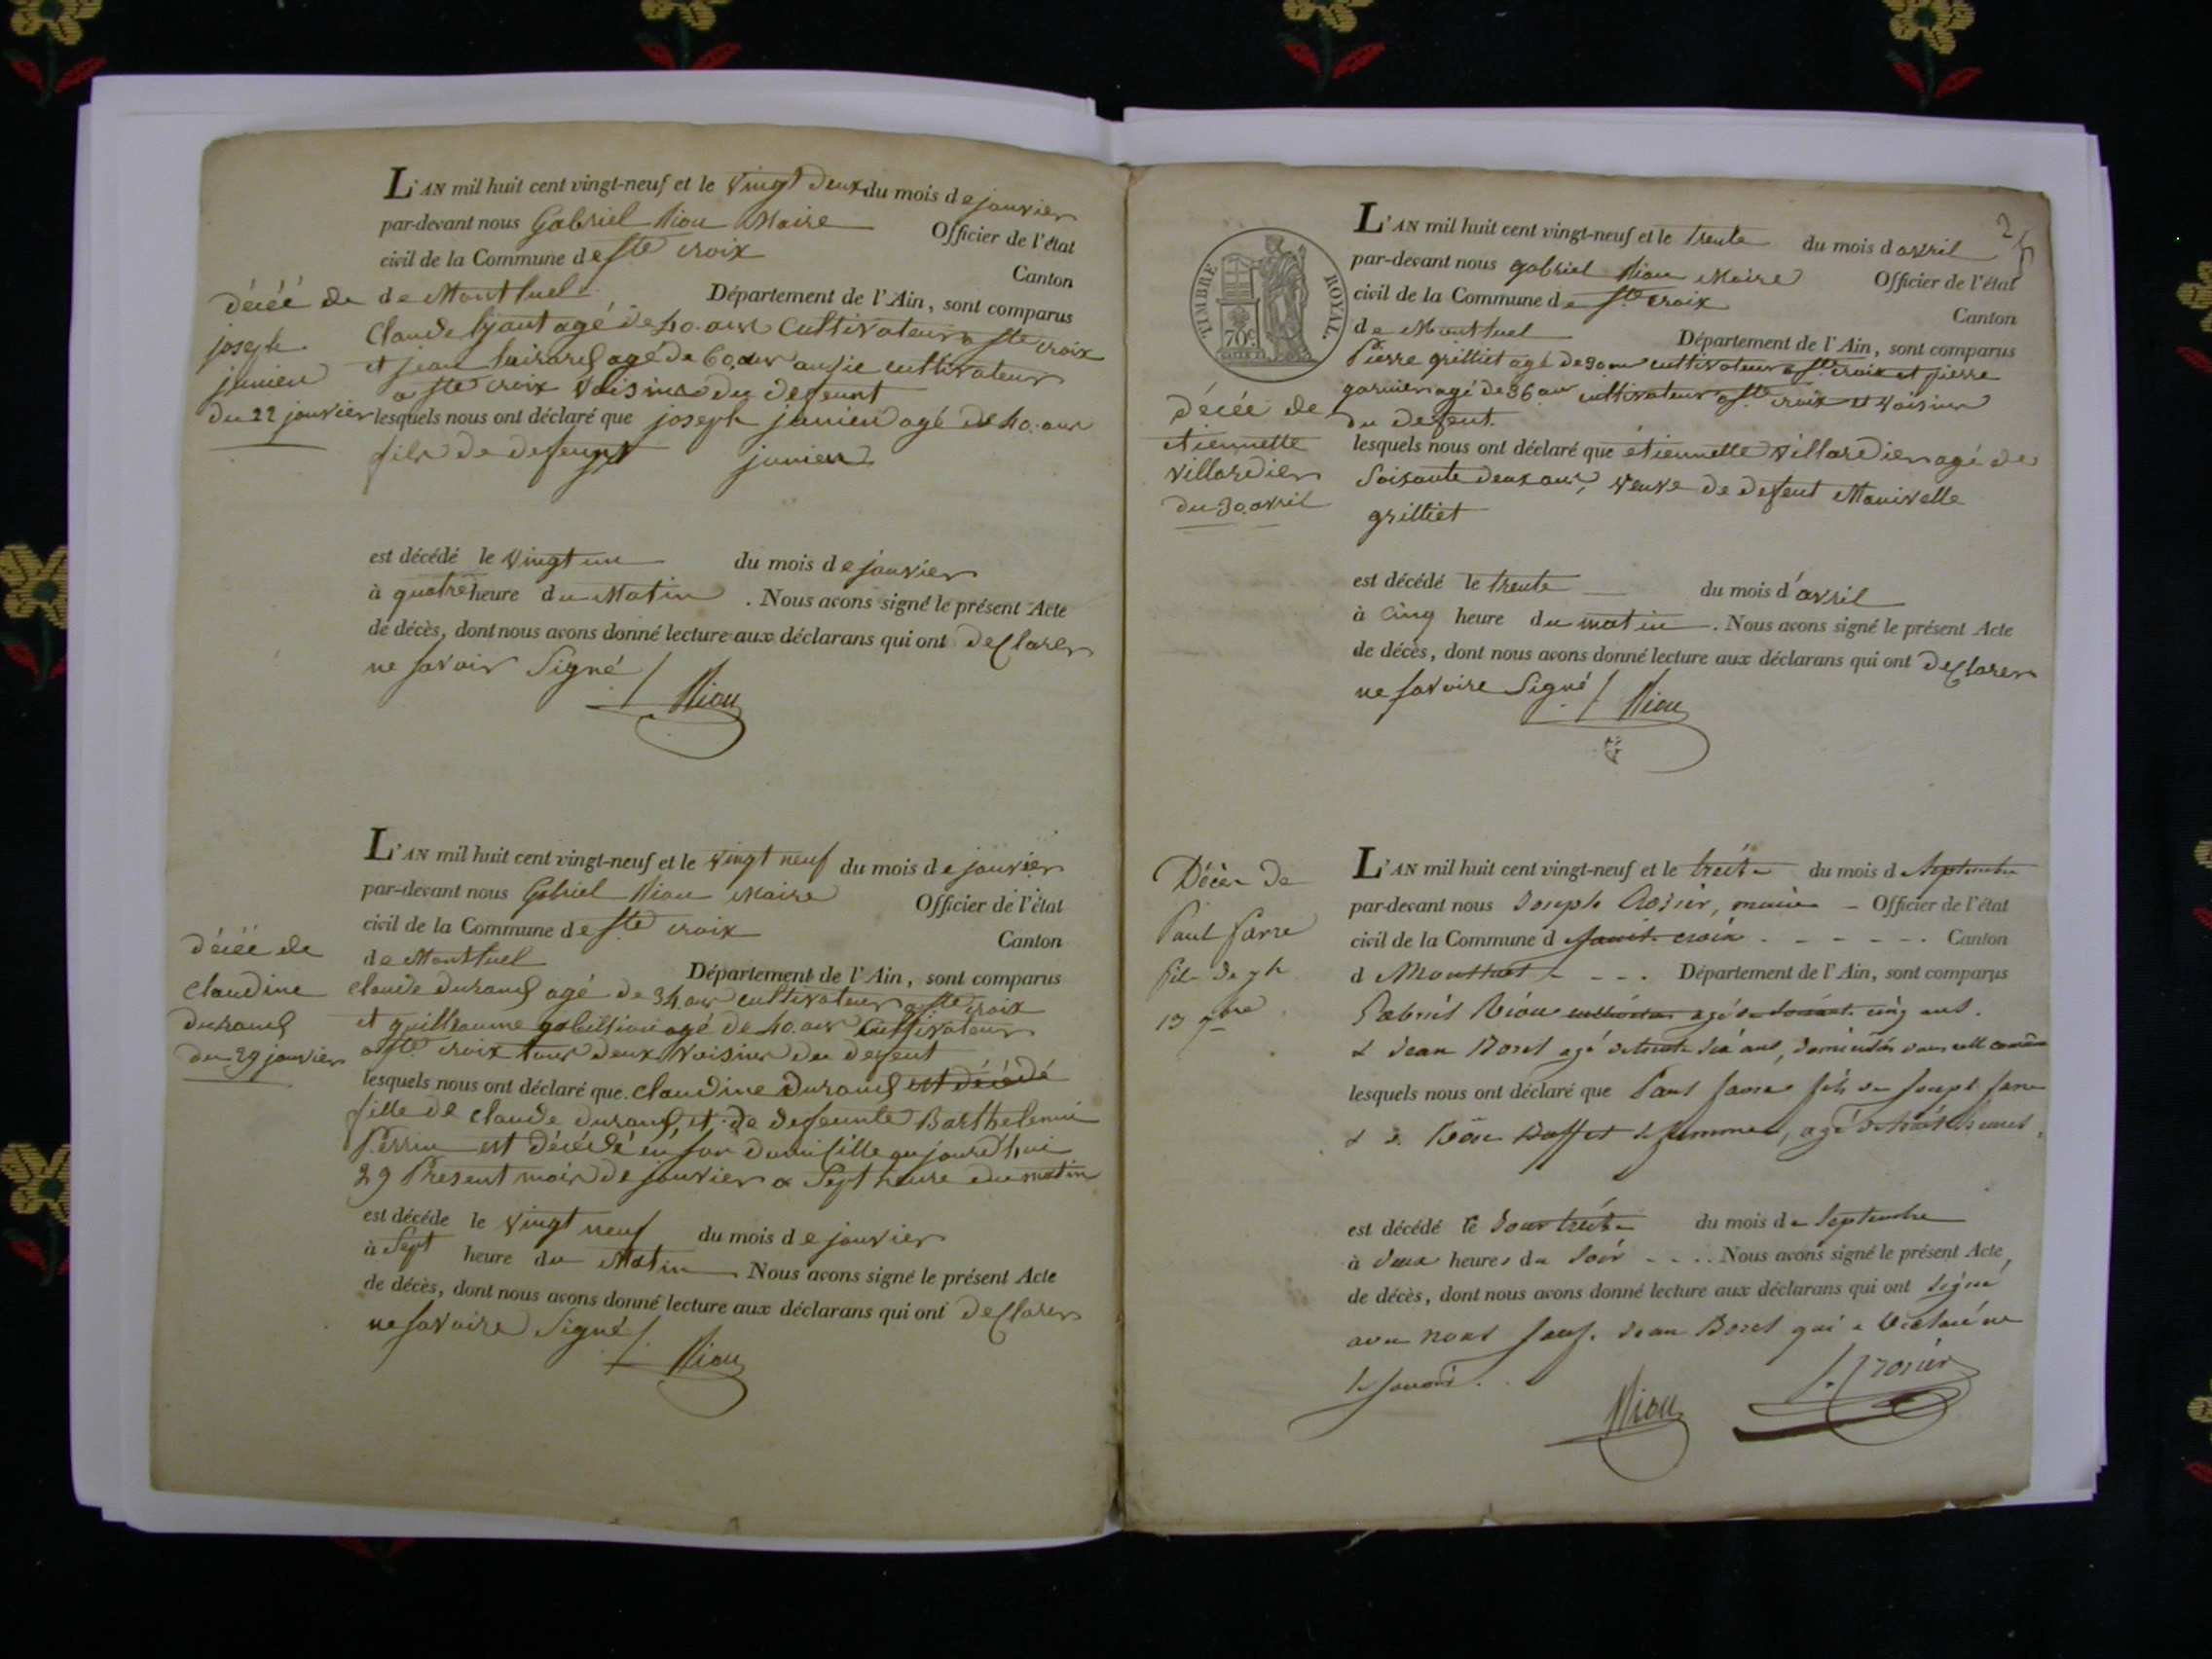 L'AN mil huit cent vingt-neuf et le vingt deux du mois de janvier
par-devant nous Gabriel Riou Maire Officier de l'état
civil de la Commune de Ste croix Canton
de Montluel Département de l'Ain, sont comparus
Claude agé de 40 ans Cultivateur a Ste croix
et jean agé de 60 ans ausie cultivateur
a Ste croix voisins du defeunt
lesquels nous ont déclaré que joseph junien agé de 40 ans
fils de defeunt junien
décéé de
joseph
junien
du 22 janvier
est décédé le vingt un du mois de janvier
à quatre heure du Matin . Nous avons signé le présent Acte
de décès, dont nous avons donné lecture aux déclarans qui ont declarer
ne savoir Signé
Riou
L'AN mil huit cent vingt-neuf et le vingt neuf du mois de janvier
par-devant nous Gabriel Riou Maire Officier de l'état
civil de la Commune de Ste croix Canton
de Montluel Département de l'Ain, sont comparus
claude durand agé de 34 ans cultivateur a Ste croix
et guilliaume agé de 40 ans cultivateur
a Ste croix tous deux voisins du defent
lesquels nous ont déclaré que claudine durand est décédé
fille de claude durand et de defeunte Barthelemie
Perrin est décédé en son domisille aujourd'hui
29 Present mois de janvier a Sept heure du matin
décéé de
claudine
durand
du 29 janvier
est décéde le vingt neuf du mois de janvier
à Sept heure du Matin Nous avons signé le présent Acte
de décès, dont nous avons donné lecture aux déclarans qui ont declarer
ne savoire Signé
Riou
TIMBRE ROYAL
70c
L'AN mil huit cent vingt-neuf et le trente du mois d avril
par-devant nous gabriel Riou Maire Officier de l'état
civil de la Commune de Ste croix Canton
de Montluel Département de l'Ain, sont comparus
Pierre grilliet agé de 30 ans cultivateur a Ste croix et pierre
garnier agé de 36 ans cultivateur a Ste croix et voisins
du defent.
lesquels nous ont déclaré que étiennette villardier agé de
Soisante deux ans, veuve de defent Manivelle
grilliet
décéé de
etiennette
villardier
du 30 avril
est décédé le trente du mois d'avril
à cinq heure du matin . Nous avons signé le présent Acte
de décès, dont nous avons donné lecture aux déclarans qui ont declarer
ne savoire Signé
Riou
L'AN mil huit cent vingt-neuf et le treize du mois d Septembre
par-devant nous Joseph Rosier, maire Officier de l'état
civil de la Commune d Canton
d Montluel Département de l'Ain, sont comparus
Gabriel Riou agé de soixante cinq ans.
& Jean Borel agé de trente six ans, domiciliés
lesquels nous ont déclaré que Paul farre fils de Joseph farre
Décès de
Paul farre
fils de jh
13 7bre
est décédé le Jour treize du mois de Septembre
à deux heures du Soir . . . . Nous avons signé le présent Acte,
de décès, dont nous avons donné lecture aux déclarans qui ont signé
avec nous sauf Jean Borel qui a déclaré ne
le savoir.
Riou J. Rosier